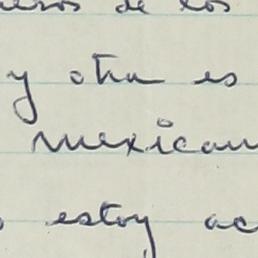 de los
y otra es
mexican
estoy ac